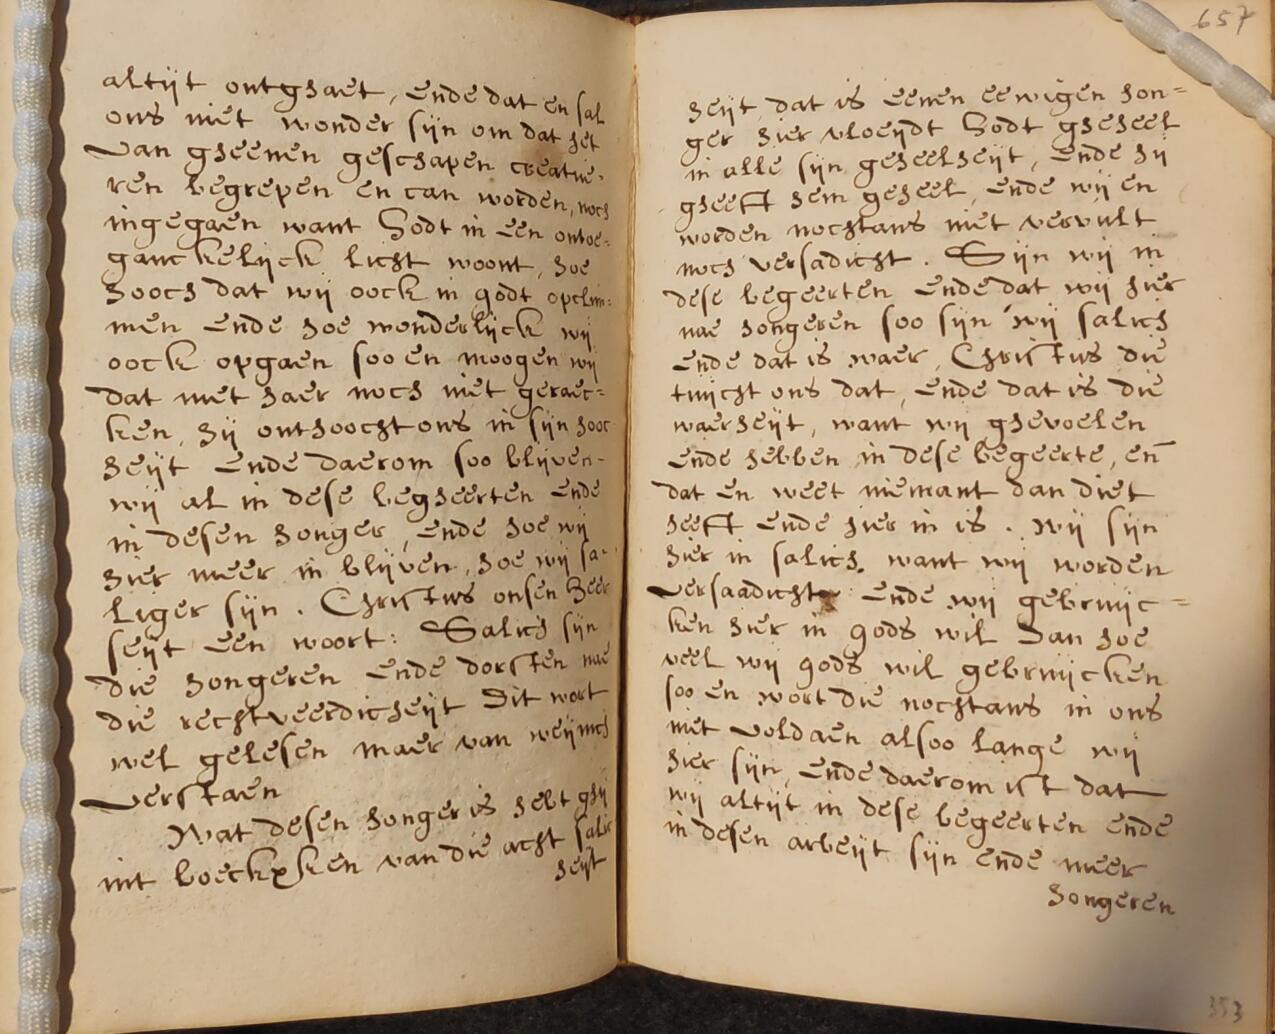 altijt ontghaet, ende dat en sal
ons niet wonder sijn om dat het
van gheenen geschapen creatue-
ren begrepen en can worden, noch
ingegaen want Godt in een ontoe-
ganckelijck licht woont, hoe
hooch dat wij oock in godt opclim-
men ende hoe wonderlijck wij
oock opgaen soo en moogen wij
dat met haer noch niet geraec-
ken, hij onthoocht ons in sijn hooc
heijt ende daerom soo blijven-
wij al in dese begheerten ende
in desen honger, ende hoe wij
hier meer in blijven, hoe wij sa-
liger sijn. Christus onsen heer
seijt een woort: Salich sijn
die hongeren ende dorsten nae
die rechtveerdicheijt Dit wort
wel gelesen maer van weijnich
verstaen
Wat desen honger is hebt ghij
int boeckxken van die acht salic
heijt
657
heijt, dat is eenen eewigen hon-
ger hier vloeijdt Godt gheheel
in alle sijn geheelheijt, ende hij
gheeft hem geheel, ende wij en
worden nochtans niet vervult
noch versadicht. Sijn wij in
dese begeerten ende dat wij hier
nae hongeren soo sijn wij salich
ende dat is waer, Christus die
tuijcht ons dat, ende dat is die
waerheijt, want wij ghevoelen
ende hebben in dese begeerte, en̄
dat en weet niemant dan diet
heeft ende hier in is. wij sijn
hier in salich. want wij worden
versaadicht ende wij gebruijc-
ken hier in gods wil Dan hoe
veel wij gods wil gebruijcken
soo en wort die nochtans in ons
niet voldaen alsoo lange wij
hier sijn, ende daerom ist dat
wij altijt in dese begeerten ende
in desen arbeijt sijn ende meer
hongeren
353